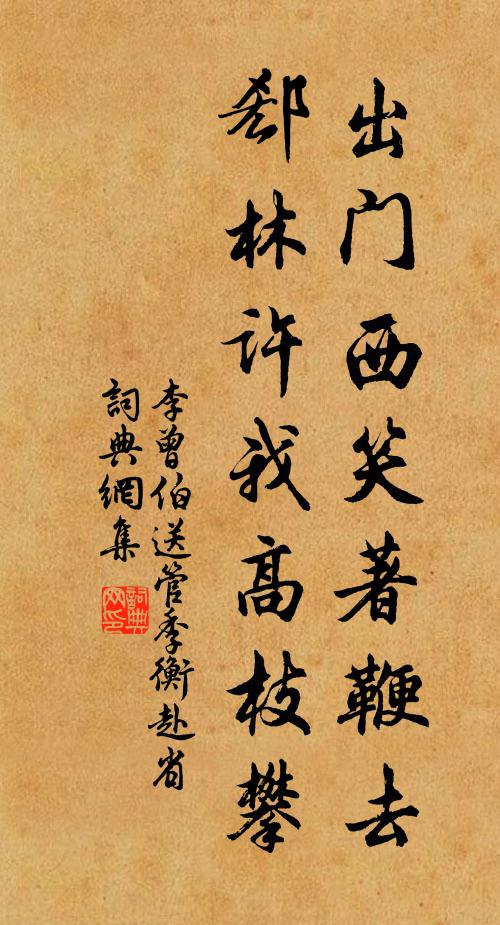 出门西笑著鞭去
郄林许我高枝攀
李曾伯送管季衡赴省
詞典網集
詞典网印